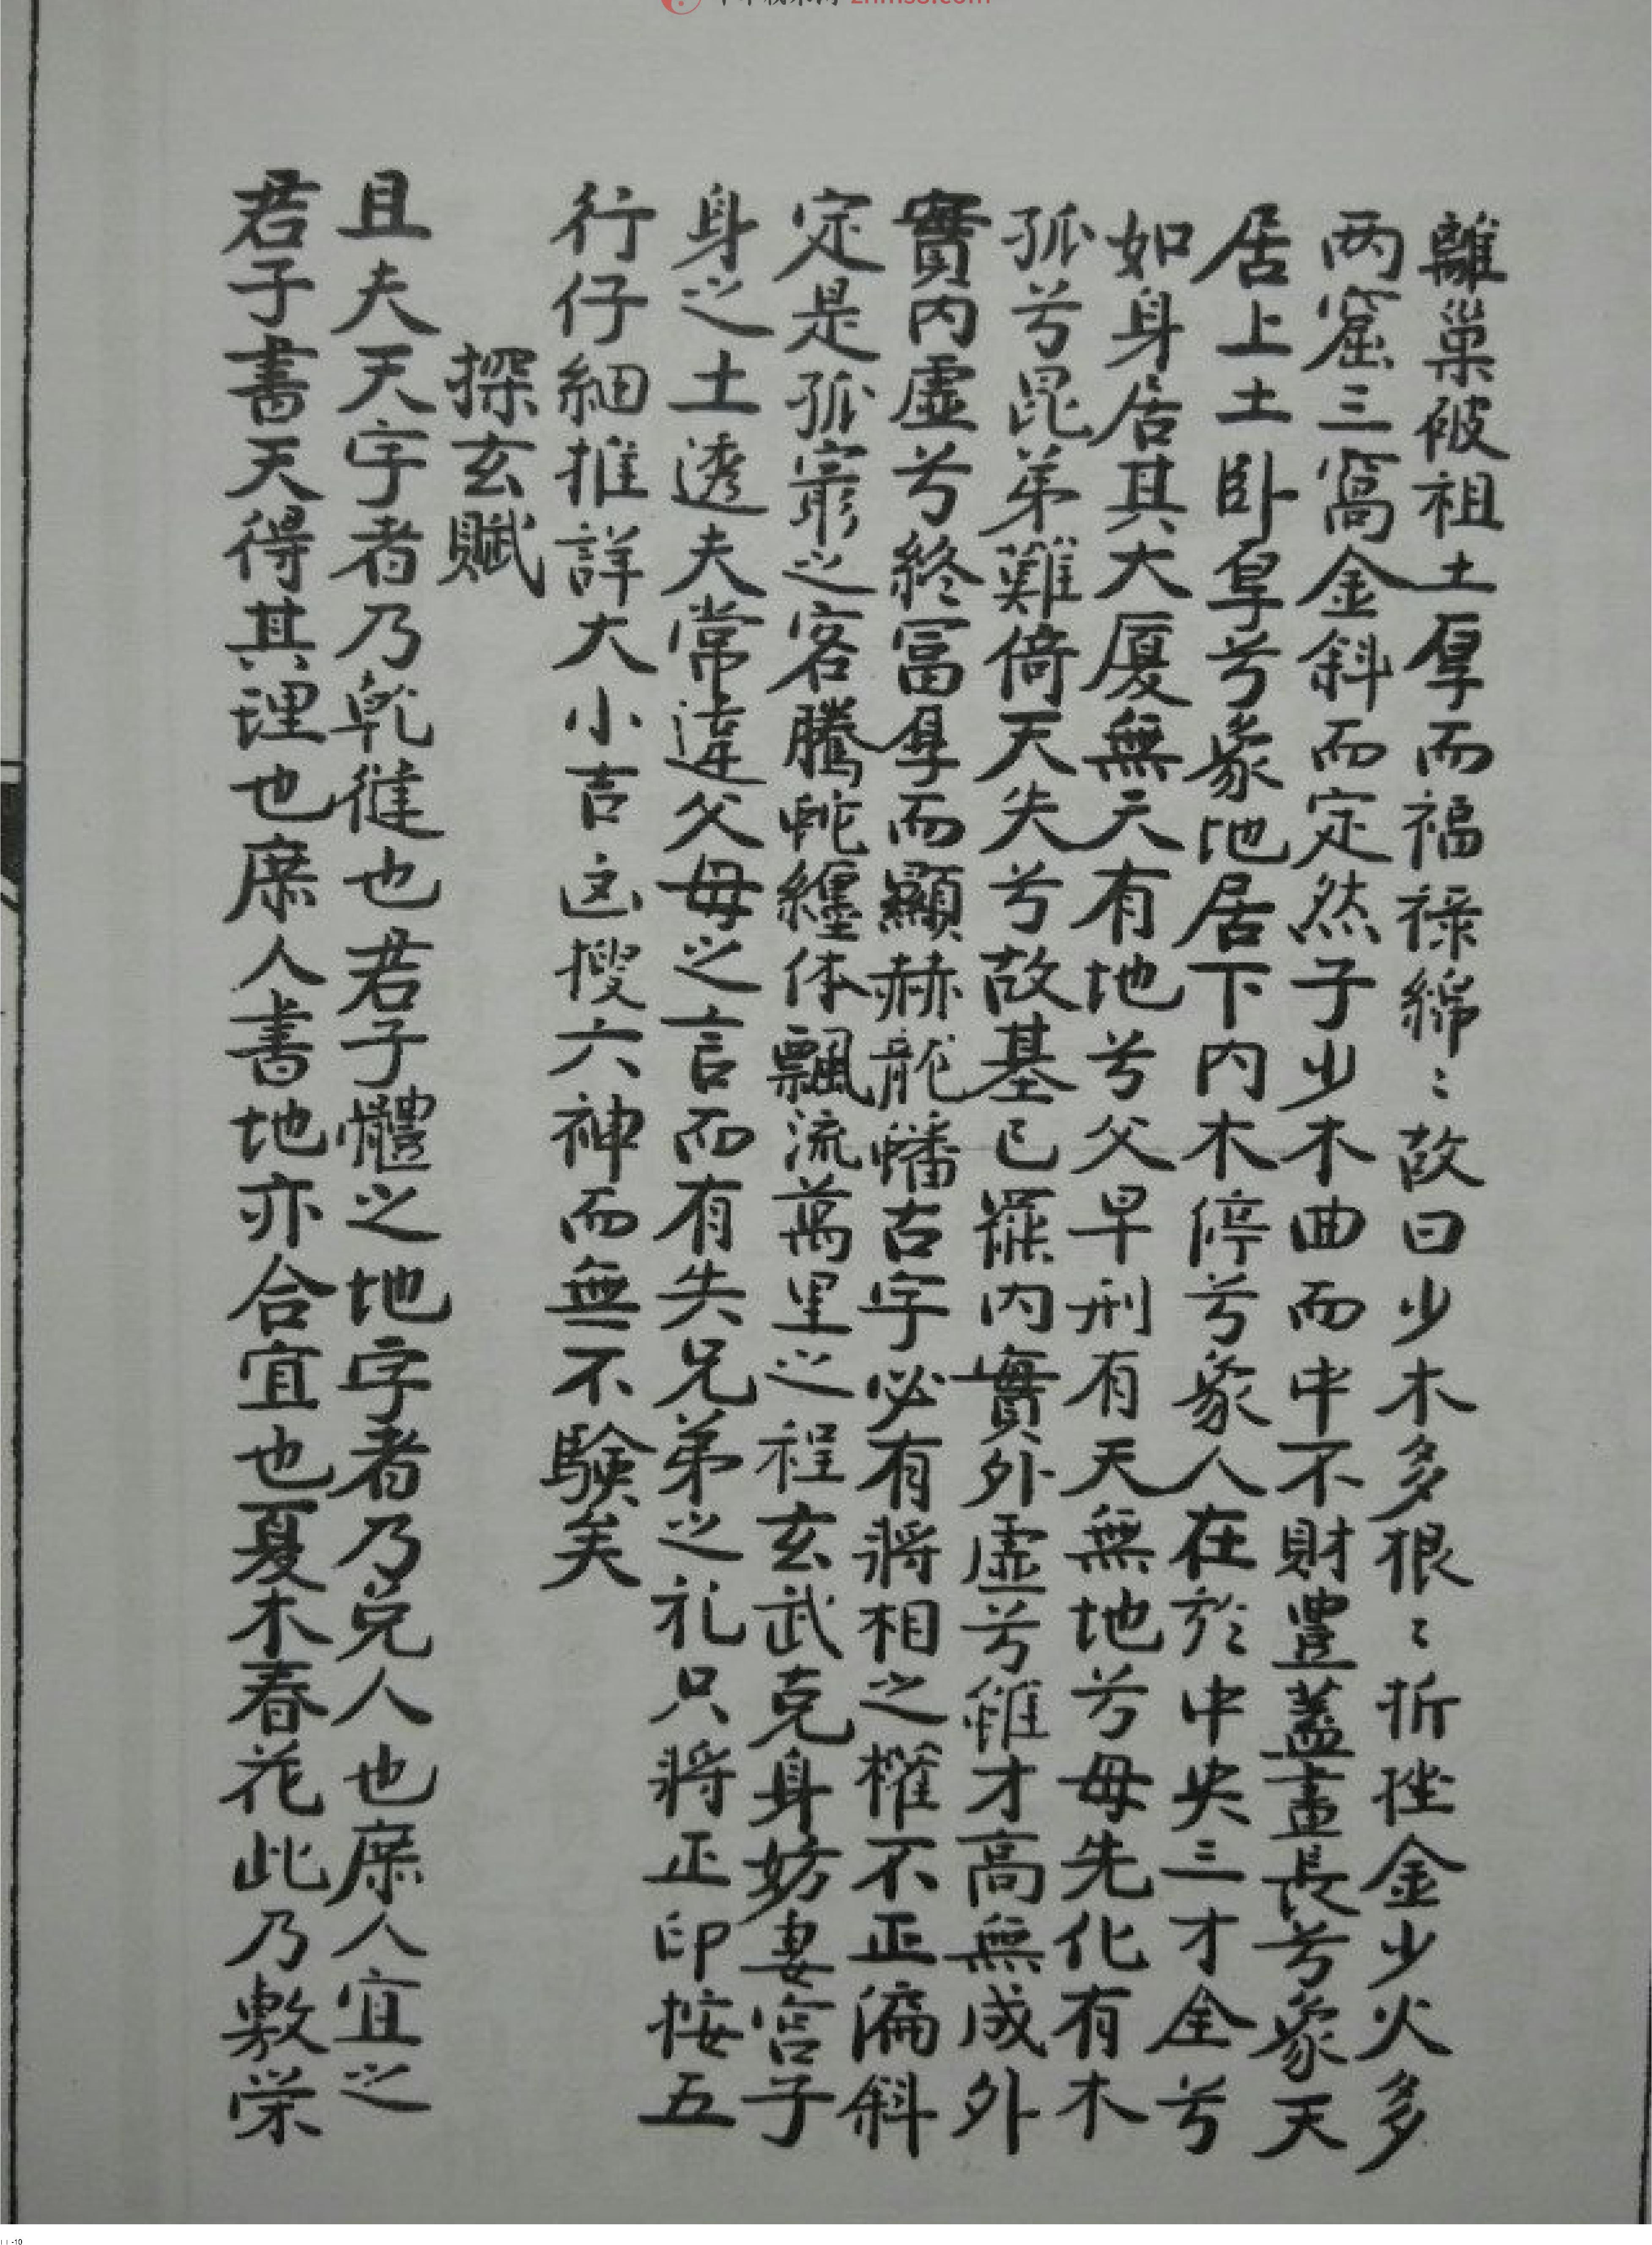 離巢破祖土厚而福禄綿〻故曰少木多多狠〻折挫金少火多
两窟三窩金斜而定然子少木曲而中不財豊蓋畫長兮象天
居上土卧厚兮象地居下内木停兮象人在於中央三才全兮
如身居其大厦無天有地兮父早刑有天無地兮母先化有木
孤兮昆弟難倚天失兮故基已羅内實外虚兮雖才高無成外
實内虚兮終冨厚而顯赫龍蟠古字必有將相之權不正漏斜
定是孤窮之客騰蛇纏体飄流萬里之程玄武克身妨妻宫子
身之土透夫常違父母之言而有失兄弟之礼只將正印按五
行仔細推詳大小吉凶搜六神而無不驗矣
探玄賦
且夫天字者乃乾健也君子體之地字者乃兑人也庶人宜之
君子書天得其理也庶人書地亦合宜也夏木春花此乃敷荣
zhms8.com
11-10